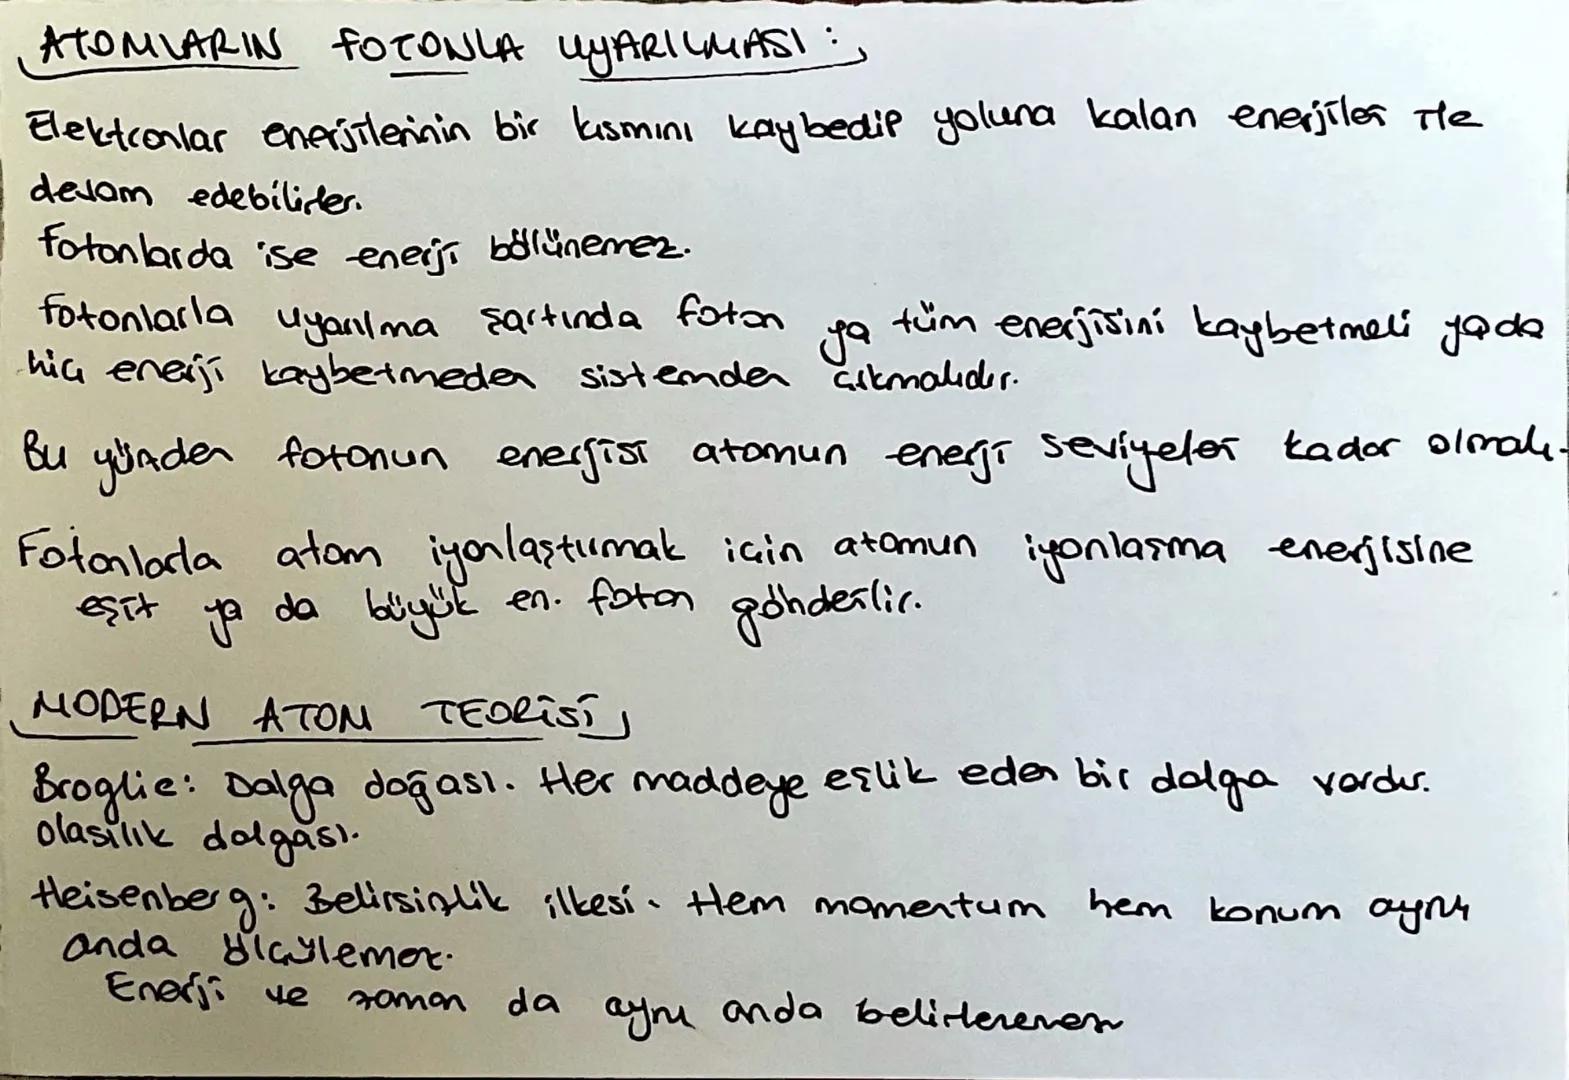 ATOMLARIN FOTONLA UYARILMASI:
Elektronlar enerjilerinin bir kısmını kaybedip yoluna kalan enerjileri ile
devam edebilirler.
Fotonlarda ise enerji bölünemez.
Fotonlarla uyarılma şartında foton ya tüm enerjisini kaybetmeli yada
hiç enerji kaybetmeden sistemden çıkmalıdır.
Bu yünden fotonun enerjisi atomun enerji seviyeleri kadar olmalı.
Fotonlarla atom iyonlaştırmak için atomun iyonlaşma enerjisine
eşit ya da büyük en. foton gönderilir.
MODERN ATOM TEORİSİ
Broglie: Dalga doğası. Her maddeye eşlik eden bir dalga vardır.
Olasılık dalgası.
Heisenberg: Belirsizlik ilkesi. Hem momentum hem konum aynı
anda ölçülemez.
Enerji ve zaman da aynı anda belirlenemez